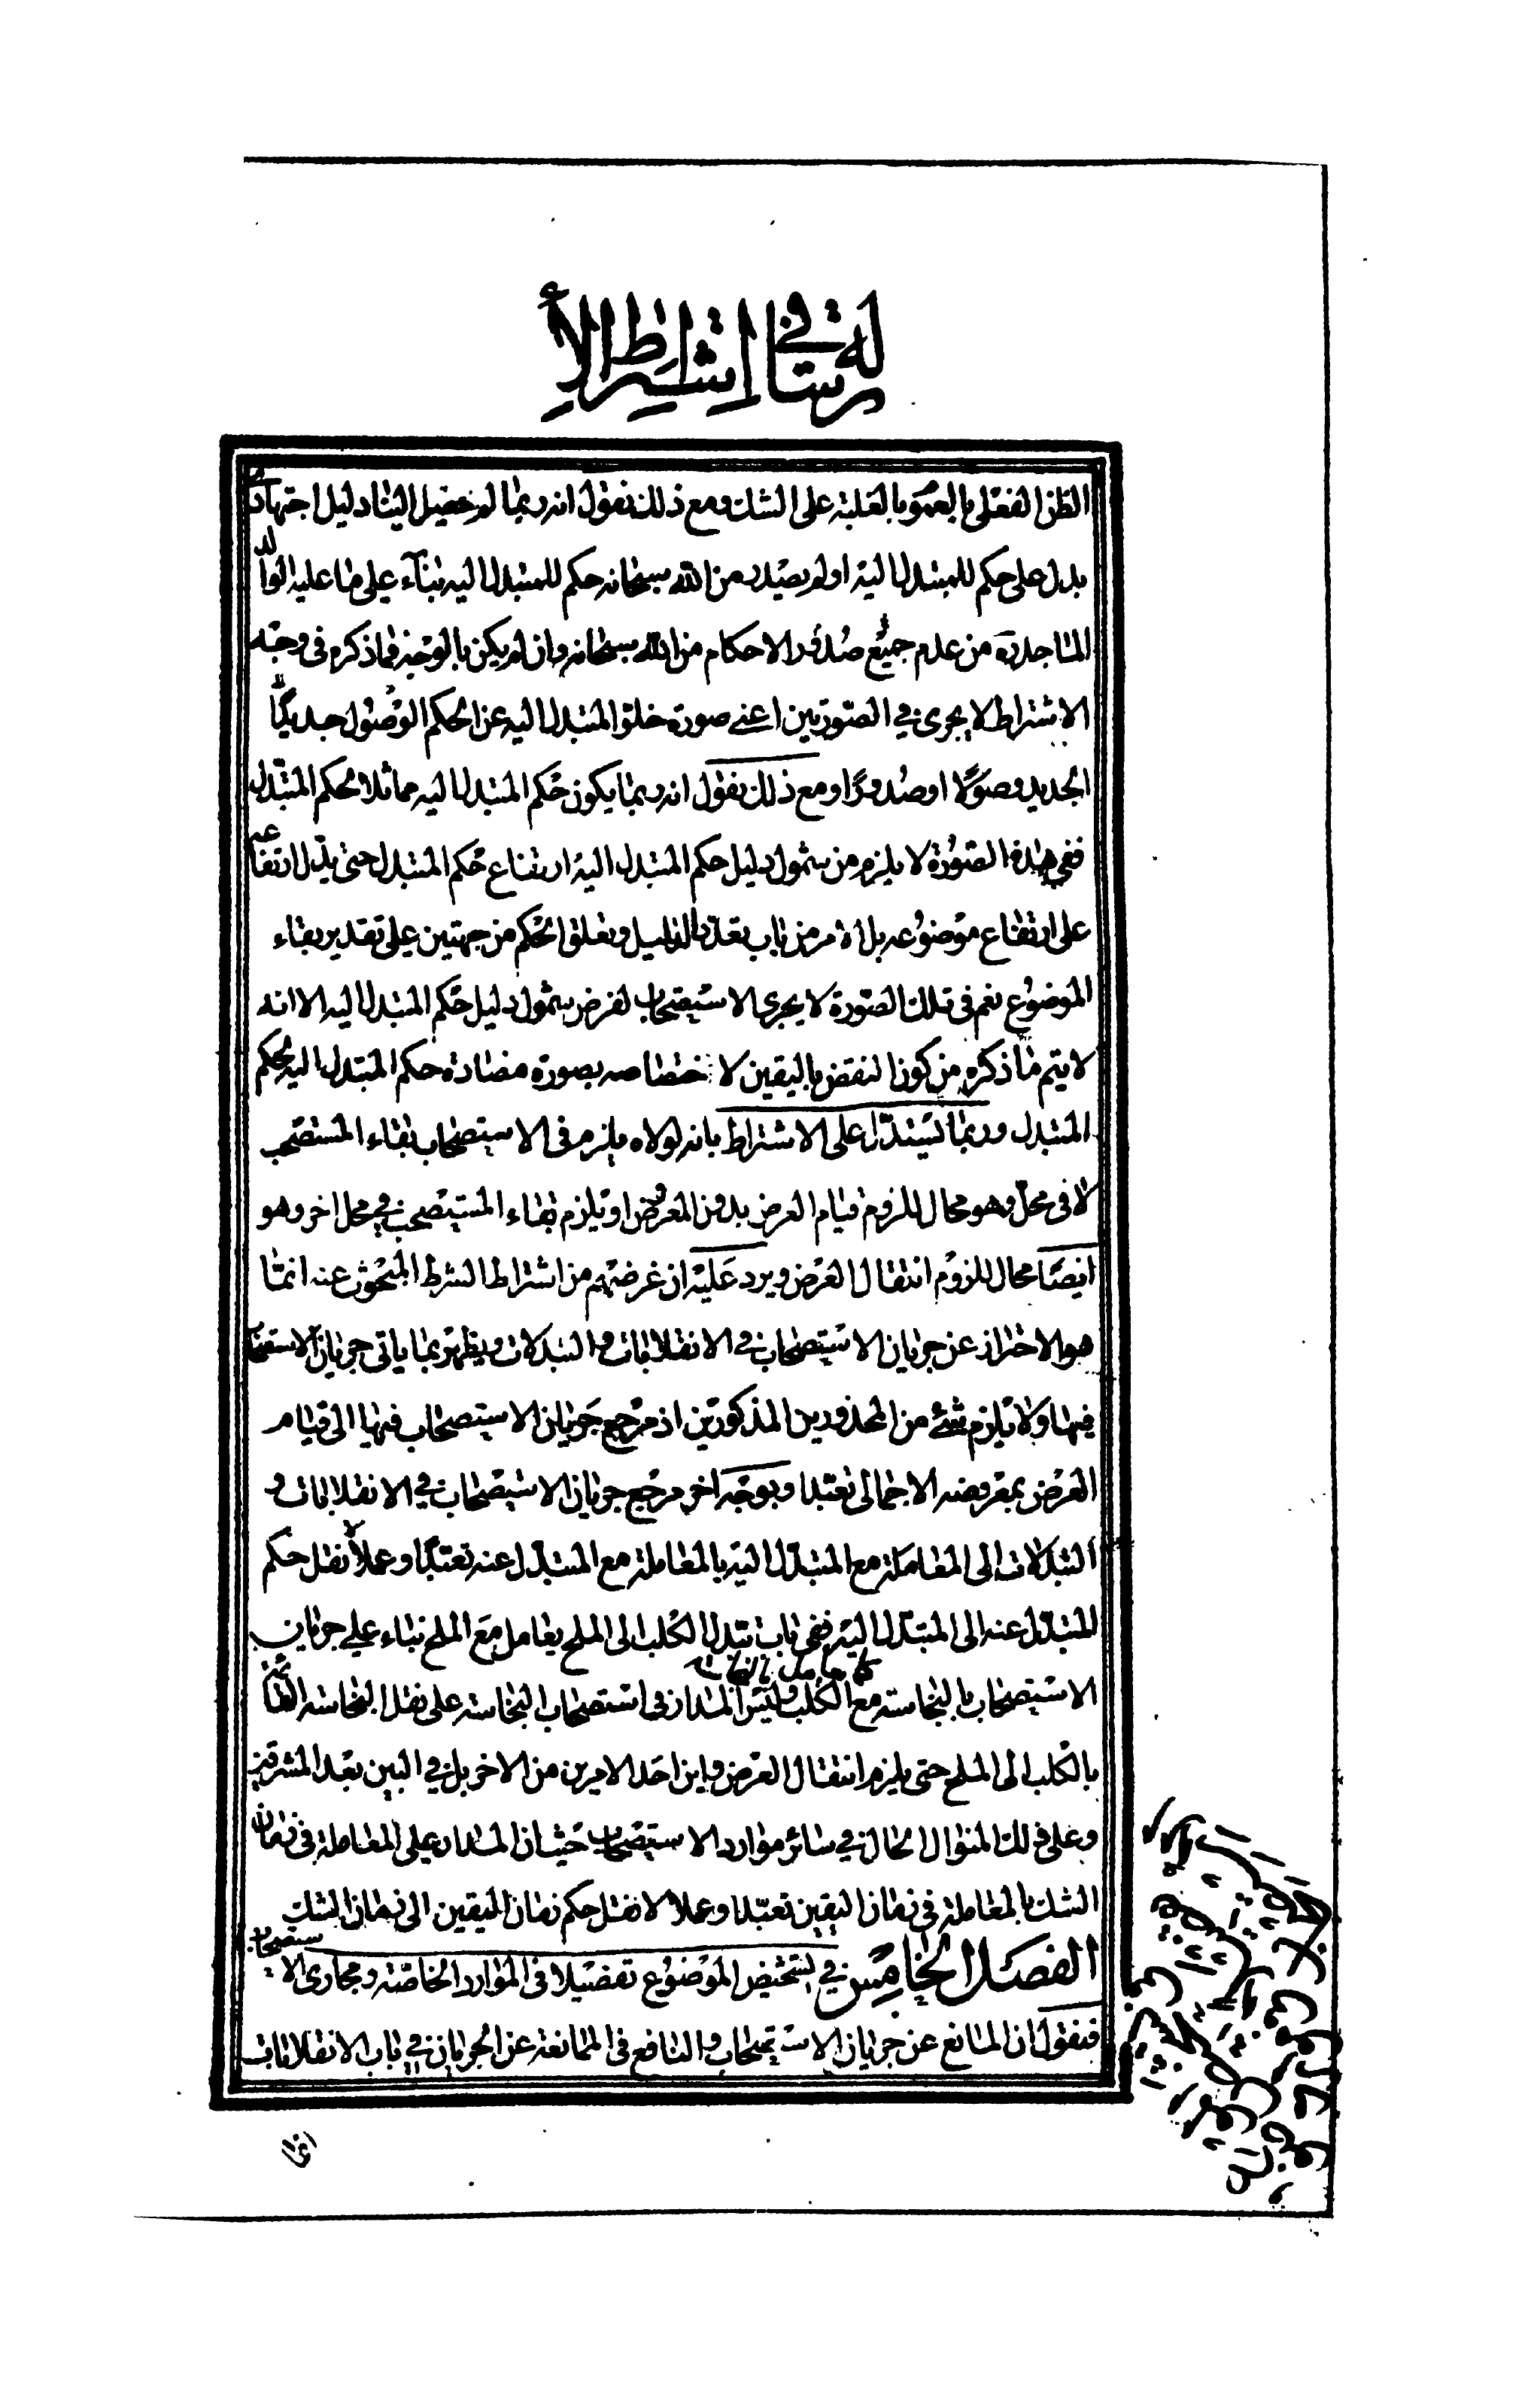 رسالة في اشتراط الأ
الظن الفعلى بالعموم بالغلبة على الشك ومع ذلك نقول انه ربما لم يصل الينا دليل اجتهادى
يدل على حكم للمتبدل اليه او لم يصدر من الله سبحانه حكم للمتبدل اليه بناء على ما عليه الوالد
الماجد ره من عدم جميع صدور الاحكام من الله سبحانه وان لم يكن بالوجه فما ذكره فى وجه
الاشتراط لا يجرى في الصورتين اعنى صورة خلو المتبدل اليه عن الحكم الوصول جديدًا
الجديد وصولًا او صدورًا ومع ذلك نقول انه ربما يكون حكم المتبدل اليه مماثلا لحكم المتبدل
ففى هذه الصورة لا يلزم من شمول دليل حكم المتبدل اليه ارتفاع حكم المتبدل حتى يدل ارتفاعه
على ارتفاع موضوعه بل الامر من باب تعدد الدليل وتعلق الحكم من جهتين على تقدير بقاء
الموضوع نعم فى تلك الصورة لا يجرى الاستصحاب لفرض شمول دليل حكم المتبدل اليه الا انه
لا يتم ما ذكره من كون النقض باليقين لاختصاصه بصورة مضادة حكم المتبدل اليه لحكم
المتبدل وربما يستدل على الاشتراط بانه لولاه يلزم فى الاستصحاب بقاء المستصحب
لا فى محل وهو محال للزوم قيام العرض بدون المعروض او يلزم بقاء المستصحب في محل اخر وهو
ايضًا محال للزوم انتقال العرض ويرد عليه ان غرضهم من اشتراط الشرط المبحوث عنه انما
هو الاحتراز عن جريان الاستصحاب في الانقلابات والتبدلات ويظهر بما ياتى جريان الاستصحاب
فيها ولا يلزم شئ من المحذورين المذكورين اذ مرجع جريان الاستصحاب فيها الى قيام
العرض بمعروضه الاجمالى تعبدا وبوجه اخر مرجع جريان الاستصحاب في الانقلابات و
التبدلات الى المعاملة مع المتبدل اليه بالمعاملة مع المتبدل عنه تعبدًا وعملًا لا نقل حكم
المتبدل عنه الى المتبدل اليه ففى باب تبدل الكلب الى الملح يعامل مع الملح بناء على جريان
الاستصحاب بالنجاسة كما يعامل بالنجاسة مع الكلب وليس المدار فى استصحاب النجاسة على نقل النجاسة القائمة
بالكلب الى الملح حتى يلزم انتقال العرض واين احد الامرين من الاخر بل في البين بعد المشرقين
وعلى ذلك المنوال الحال في سائر موارد الاستصحاب حيث ان المدار على المعاملة فى زمان
الشك بالمعاملة فى زمان اليقين تعبدا وعملا لا نقل حكم زمان اليقين الى زمان الشك
الفصل الخامس في تشخيص الموضوع تفصيلا فى الموارد الخاصة ومجارى الاستصحاب
فنقول ان المانع عن جريان الاستصحاب والنافع فى الممانعة عن الجريان في باب الانقلابات